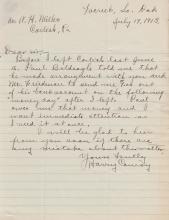 Vecrik, So. Dak
July 17, 1915.
Mr. A. H. Miller
Carlisle, Pa
Dear sir:
Before I left Carlisle last June
a Paul Baldeagle told me that
he made arrangement with you and
Mr. Friedman to send me
out
of his account on the following
"money day" after I left. Paul
owes me that money and I
want immediate attention as
I need it at once.
I will be glad to hear
from you soon if there are
any mistake about this matter.
Yours Truly
Harry